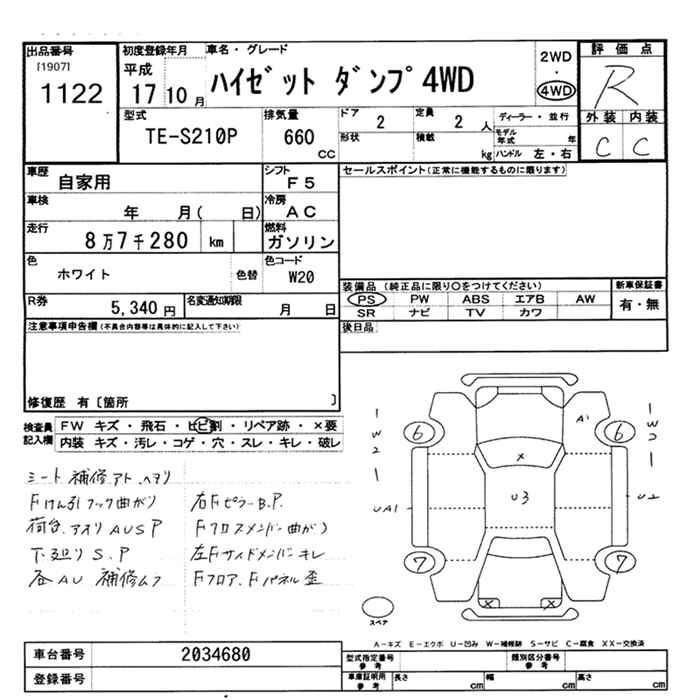 出品番号
[1907]
1122
初度登録年月
平成
17 10 月
車名・グレード
ハイゼット ダンプ 4WD
2WD
・
4WD
評価点
R
外装 内装
C C
型式
TE-S210P
排気量
660
CC
ドア 2
形状
定員 2 人
積載 kg
ディーラー・並行
モデル年式 年
ハンドル 左・右
車歴
自家用
シフト
F5
車検
年 月( 日)
冷房
AC
走行
8万7千280 km
燃料
ガソリン
色
ホワイト
色替
色コード
W20
R券
5,340 円
名変通知期限
月 日
セールスポイント(正常に機能するものに限ります)
装備品(純正品に限り○をつけてください)
PS PW ABS エアB AW
SR ナビ TV カワ
新車保証書
有・無
後日品
注意事項申告欄(不具合内容等は具体的に記入して下さい)
修復歴 有〔箇所 〕
検査員
記入欄
FW キズ・飛石・ヒビ割・リペア跡・×要
内装 キズ・汚レ・コゲ・穴・スレ・キレ・破レ
シート 補修アト ヘタリ
Fけん引フック曲がり
荷台、アオリ AUSP
下廻り S.P
各AU 補修ムラ
右FピラーB.P.
Fクロスメンバー曲がり
左Fサイドメンバー キレ
Fフロア、Fパネル歪
W2
6
A1
6
W2
×
UA1
U3
U2
7
7
× ×
スペア
A-キズ E-エクボ U-凹み W-補修跡 S-サビ C-腐食 XX-交換済
車台番号
2034680
登録番号
型式指定番号
参考
類別区分番号
参考
車庫証明用
参考
長さ cm
幅 cm
高さ cm